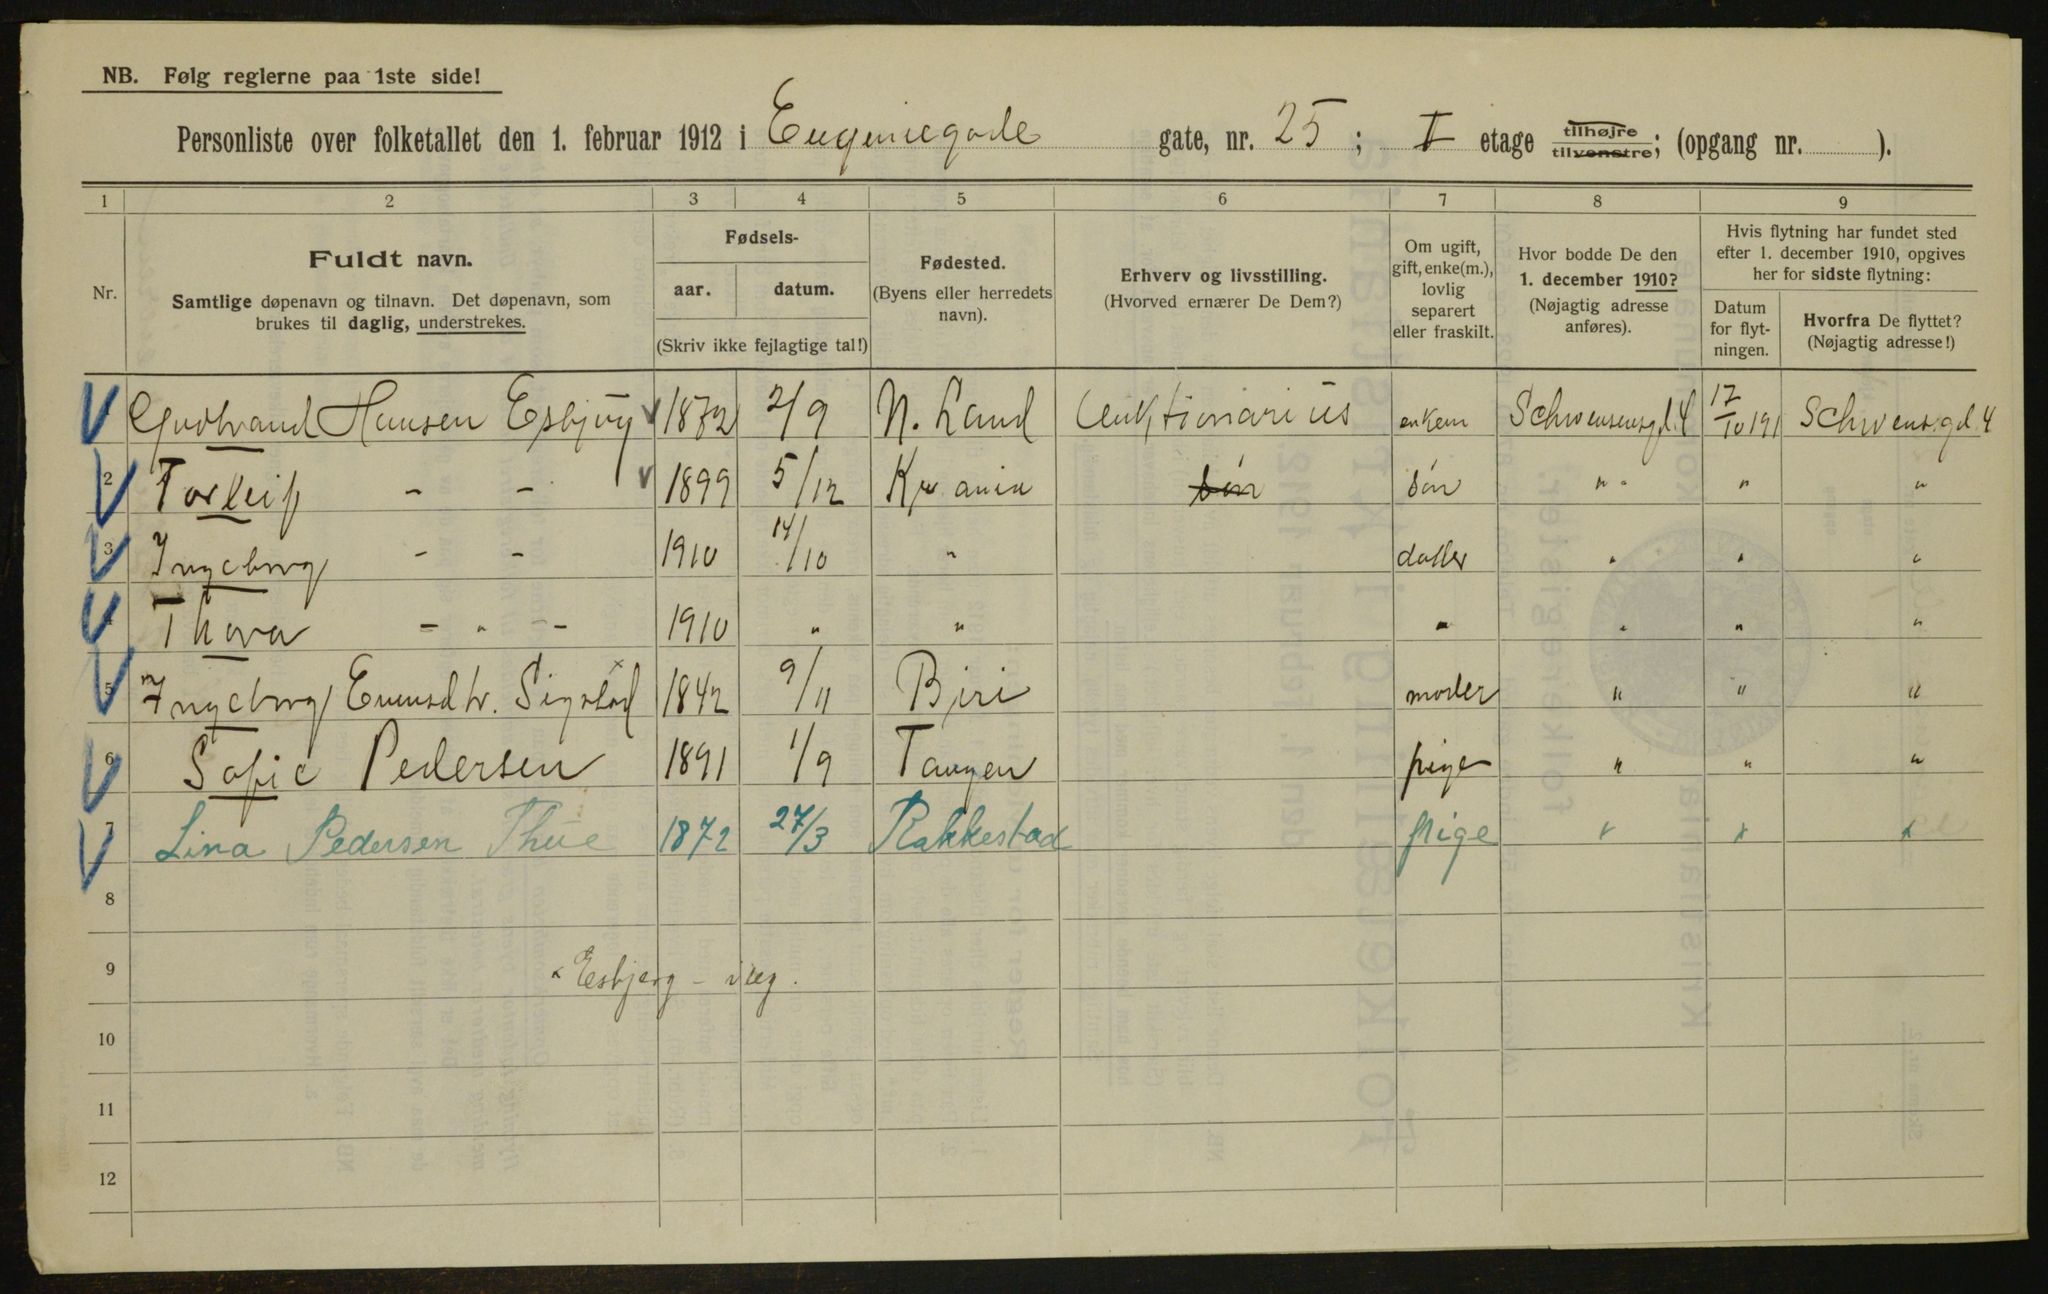 NB. Følg reglerne paa 1ste side!
Personliste over folketallet den 1. februar 1912 i Eugeniegade gate, nr. 25 ; I etage tilhøjre tilvenstre; (opgang nr. ).
1 2 3 4 5 6 7 8 9
Nr.
Fuldt navn.
Samtlige døpenavn og tilnavn. Det døpenavn, som
brukes til daglig, understrekes.
Fødsels-
aar. datum.
(Skriv ikke fejlagtige tal!)
Fødested.
(Byens eller herredets
navn).
Erhverv og livsstilling.
(Hvorved ernærer De Dem?)
Om ugift,
gift, enke(m.),
lovlig
separert
eller fraskilt.
Hvor bodde De den
1. december 1910?
(Nøjagtig adresse
anføres).
Hvis flytning har fundet sted
efter 1. december 1910, opgives
her for sidste flytning:
Datum
for flyt-
ningen.
Hvorfra De flyttet?
(Nøjagtig adresse!)
Gudbrand Hansen Esbjug 1872 2/9 N. Land Auktionarius enkem Schwensensgd. 4 17/10 191 Schwens.gd. 4
2 Torleif - - 1899 5/12 Kr ania søn søn " " " "
3 Ingeborg - - 1910 14/10 " datter " " "
4 Thora - " - 1910 " " " " " "
5 Ingeborg Evensdtr. Sigstad 1842 9/11 Biri moder " " "
6 Sofie Pedersen 1891 1/9 Tangen pige " " "
7 Lina Pedersen Thue 1872 27/3 Rakkestad pige " " "
8
9
× Esbjerg - 
10
11
12